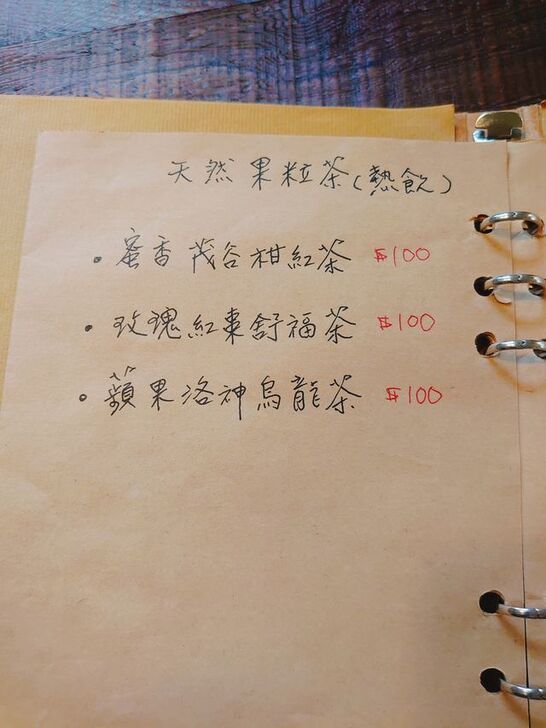 天然果粒茶(熱飲)
• 蜜香茂谷柑紅茶 $100
• 玫瑰紅棗舒福茶 $100
• 蘋果洛神烏龍茶 $100